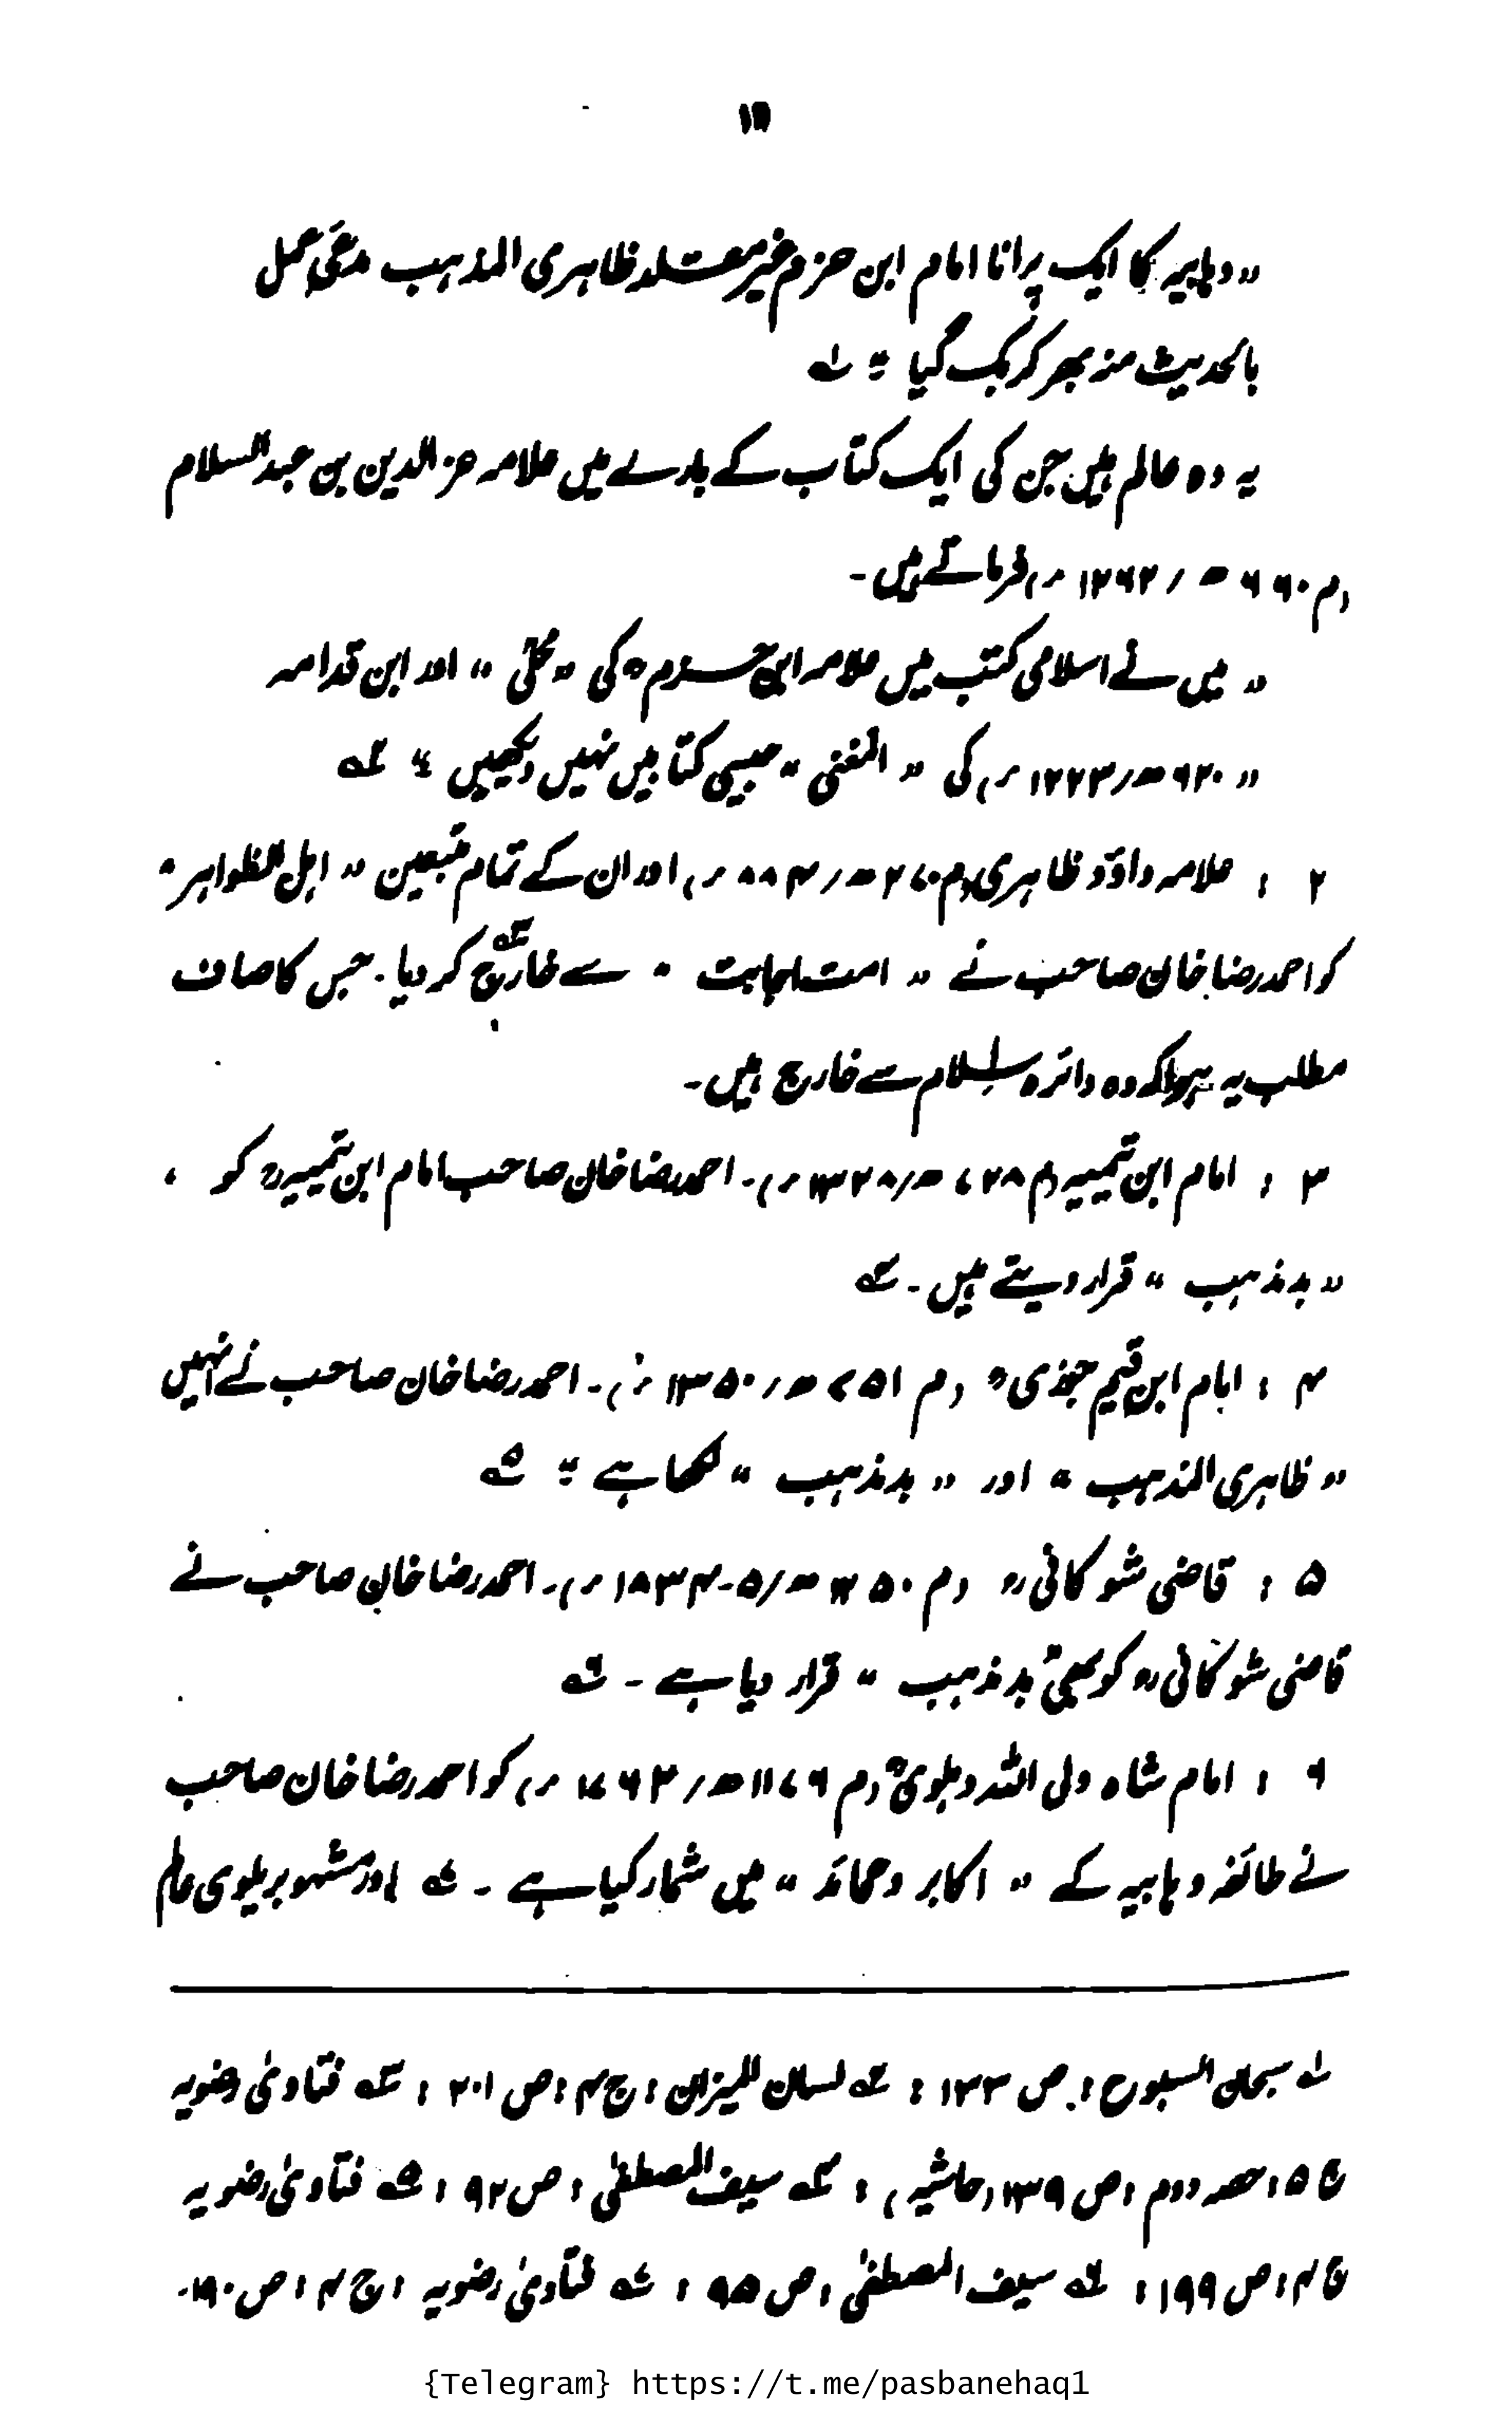 "وہابیہ کا ایک پرانا امام ابن حزم غیر مقلد ظاہری المذہب مدعی عمل
بالحدیث منہ بھر کر بک گیا " ۱ے
یہ وہ عالم ہیں جن کی ایک کتاب کے بارے میں علامہ عز الدین بن عبد السلام
(م ۶۶۰ھ / ۱۲۶۲ء) فرماتے ہیں۔
" میں نے اسلامی کتب میں علامہ ابن حزمؒ کی "محلّٰی" اور ابن قدامہ
" ۶۲۰ھ/۱۲۲۳ء) کی " المغنی " جیسی کتابیں نہیں دیکھیں " ۲ے
۲ : علامہ داؤد ظاہری (م ۲۷۰ھ / ۸۸۴ء) اور ان کے تمام متبعین " اہل الظواہر "
کو احمد رضا خان صاحب نے " امت اجابت " سے خارج ۳ے کر دیا۔ جس کا صاف
مطلب یہ ہوا کہ وہ دائرہ اسلام سے خارج ہیں۔
۳ : امام ابن تیمیہ (م ۷۲۸ھ/۱۳۲۸ء)۔ احمد رضا خان صاحب امام ابن تیمیہؒ کو
" بد مذہب " قرار دیتے ہیں۔ ۴ے
۴ : امام ابن قیم جوزیؒ (م ۷۵۱ھ / ۱۳۵۰ء)۔ احمد رضا خان صاحب نے انہیں
" ظاہری المذہب " اور " بد مذہب " لکھا ہے " ۵ے
۵ : قاضی شوکانیؒ (م ۱۲۵۰ھ/۵-۱۸۳۴ء)۔ احمد رضا خان صاحب نے
قاضی شوکانیؒ کو بھی " بد مذہب " قرار دیا ہے ۔ ۶ے
۶ : امام شاہ ولی اللہ دہلویؒ (م ۱۱۷۶ھ / ۱۷۶۳ء) کو احمد رضا خان صاحب
نے طائفہ وہابیہ کے " اکابر و عمائد " میں شمار کیا ہے ۔ ۷ے اور مشہور بریلوی عالم
۱ے سبحان السبوح : ص ۱۳۳ : ۲ے لسان المیزان : ج ۴ : ص ۲۰۱ : ۳ے فتاویٰ رضویہ
ج ۵ : حصہ دوم : ص ۱۳۹ (حاشیہ) : ۴ے سیف المصطفٰی : ص ۹۲ : ۵ے فتاویٰ رضویہ
ج ۴ : ص ۱۹۹ : ۶ے سیف المصطفٰی : ص ۹۵ : ۷ے فتاویٰ رضویہ : ج ۴ : ص ۱۹۰۔
{Telegram} https://t.me/pasbanehaq1